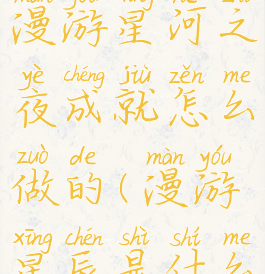 漫游星河之
yè chéng jiù zěn me
夜成就怎么
zuò de màn yóu
做的(漫游
xīng chén shì shí me
星辰是什么